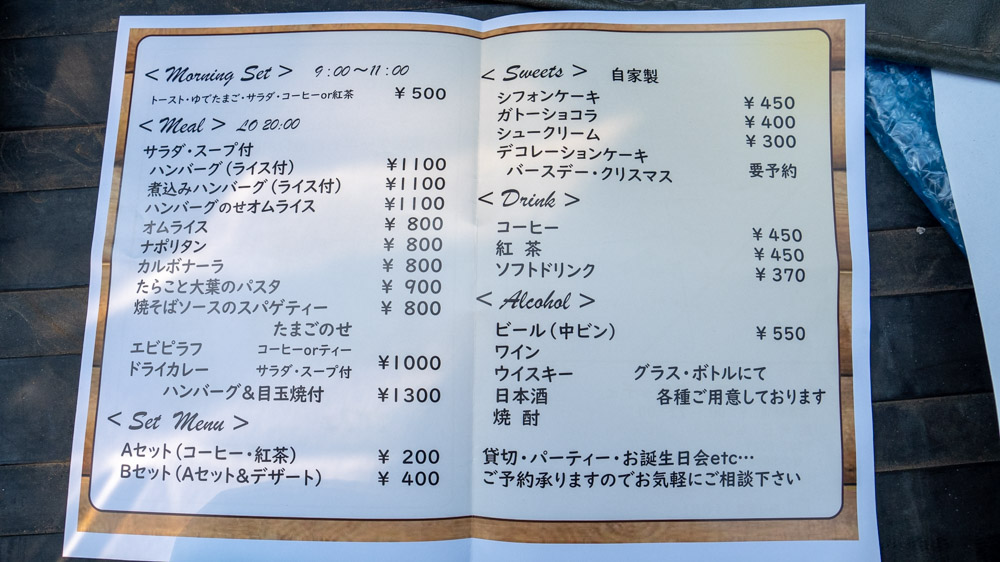 < Morning Set > 9:00～11:00
トースト・ゆでたまご・サラダ・コーヒーor紅茶 ¥500
< Meal > LO 20:00
サラダ・スープ付
ハンバーグ(ライス付) ¥1100
煮込みハンバーグ(ライス付) ¥1100
ハンバーグのせオムライス ¥1100
オムライス ¥ 800
ナポリタン ¥ 800
カルボナーラ ¥ 800
たらこと大葉のパスタ ¥ 900
焼そばソースのスパゲティー ¥ 800
たまごのせ
エビピラフ コーヒーorティー
ドライカレー サラダ・スープ付 ¥1000
ハンバーグ&目玉焼付 ¥1300
< Set Menu >
Aセット(コーヒー・紅茶) ¥ 200
Bセット(Aセット&デザート) ¥ 400
< Sweets > 自家製
シフォンケーキ ¥450
ガトーショコラ ¥400
シュークリーム ¥300
デコレーションケーキ
バースデー・クリスマス 要予約
< Drink >
コーヒー ¥450
紅 茶 ¥450
ソフトドリンク ¥370
< Alcohol >
ビール(中ビン) ¥550
ワイン
ウイスキー グラス・ボトルにて
日本酒 各種ご用意しております
焼 酎
貸切・パーティー・お誕生日会etc…
ご予約承りますのでお気軽にご相談下さい